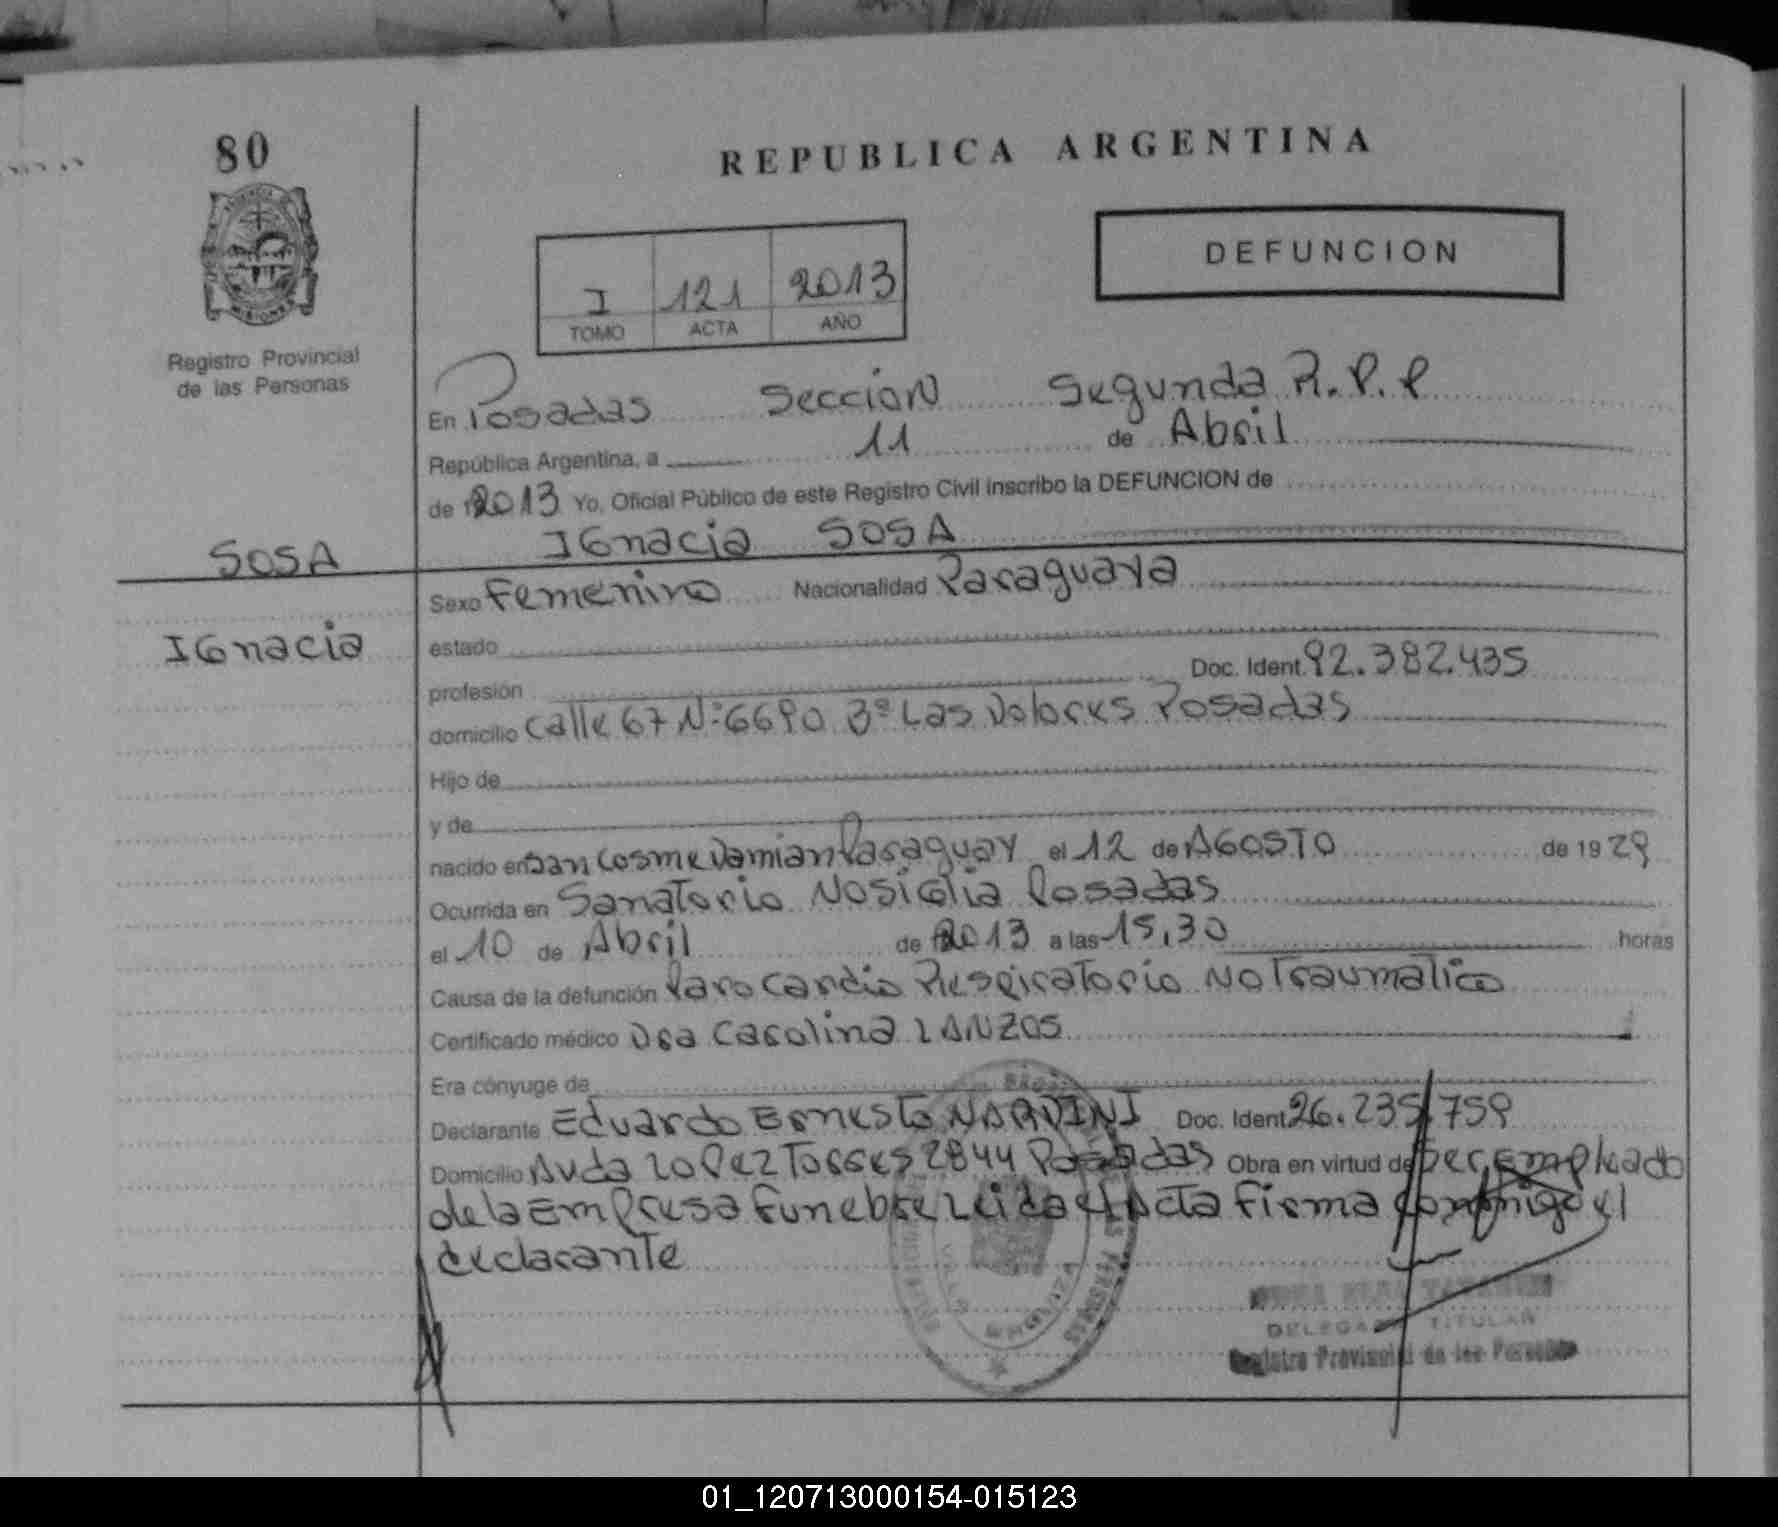 80
REPUBLICA ARGENTINA
DEFUNCION
I 121 2013
TOMO ACTA AÑO
Registro Provincial
de las Personas
En Posadas Seccion Segunda R.P.P
República Argentina, a 11 de Abril
de 2013 Yo, Oficial Público de este Registro Civil inscribo la DEFUNCION de
SOSA IGnacia SOSA
Sexo Femenino Nacionalidad Paraguaya
IGnacia
estado
profesión Doc. Ident. 92.382.435
domicilio Calle 67 Nº 6690 Bº Las Dolores Posadas
Hijo de
y de
nacido en San Cosme Damian Paraguay el 12 de AGOSTO de 1929
Ocurrida en Sanatorio Nosiglia Posadas
el 10 de Abril de 2013 a las 15,30 horas
Causa de la defunción Paro Cardio Respiratorio No Traumatico
Certificado médico Dra Carolina LANZOS
Era cónyuge de
Declarante Eduardo Ernesto NARDINI Doc. Ident. 26.235.759
Domicilio Avda Lopez Torres 2844 Posadas Obra en virtud de Ser Empleado
de la Empresa Funebre Leida el Acta Firma conmigo el
declarante
DELEGADA TITULAR
Registro Provincial de las Personas
01_120713000154-015123